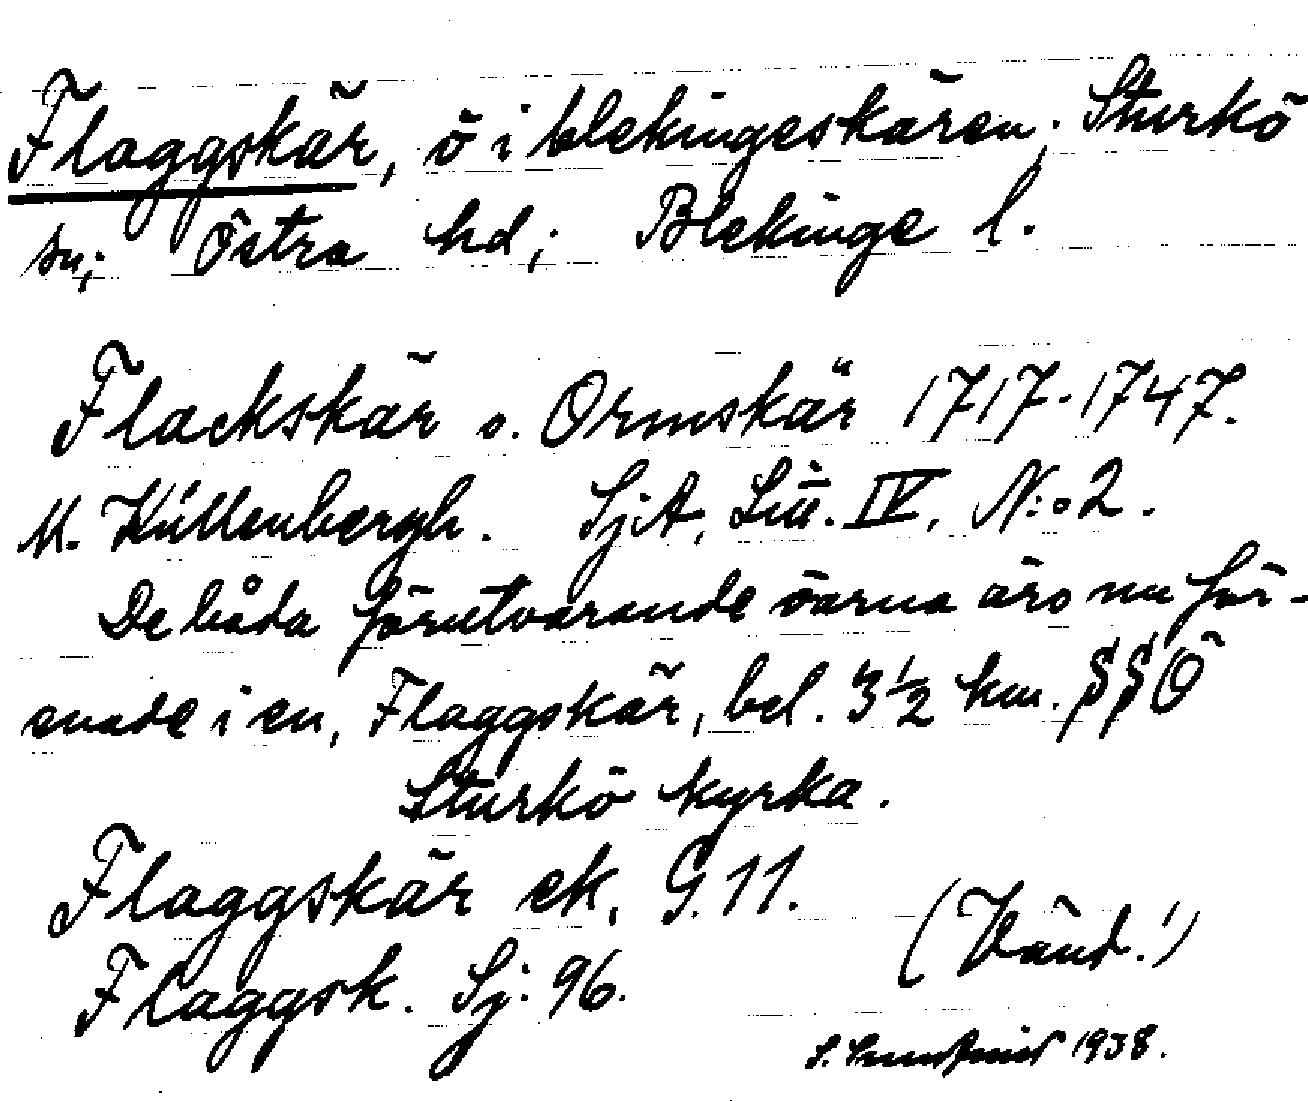 Flaggskär, ö i blekingeskären; Sturkö
sn; Östra hd; Blekinge l.
Flackskär o. Ormskär 1717-1747.
M. Küllenbergh. SjA, Litt. IV, N:o 2.
De båda förutvarande öarna äro nu för-
enade i en, Flaggskär, bel. 3 1/2 km. SSÖ
Sturkö kyrka.
Flaggskär ek. G. 11.
Flaggsk. Sj: 96.
(Vänd!)
S. 1938.